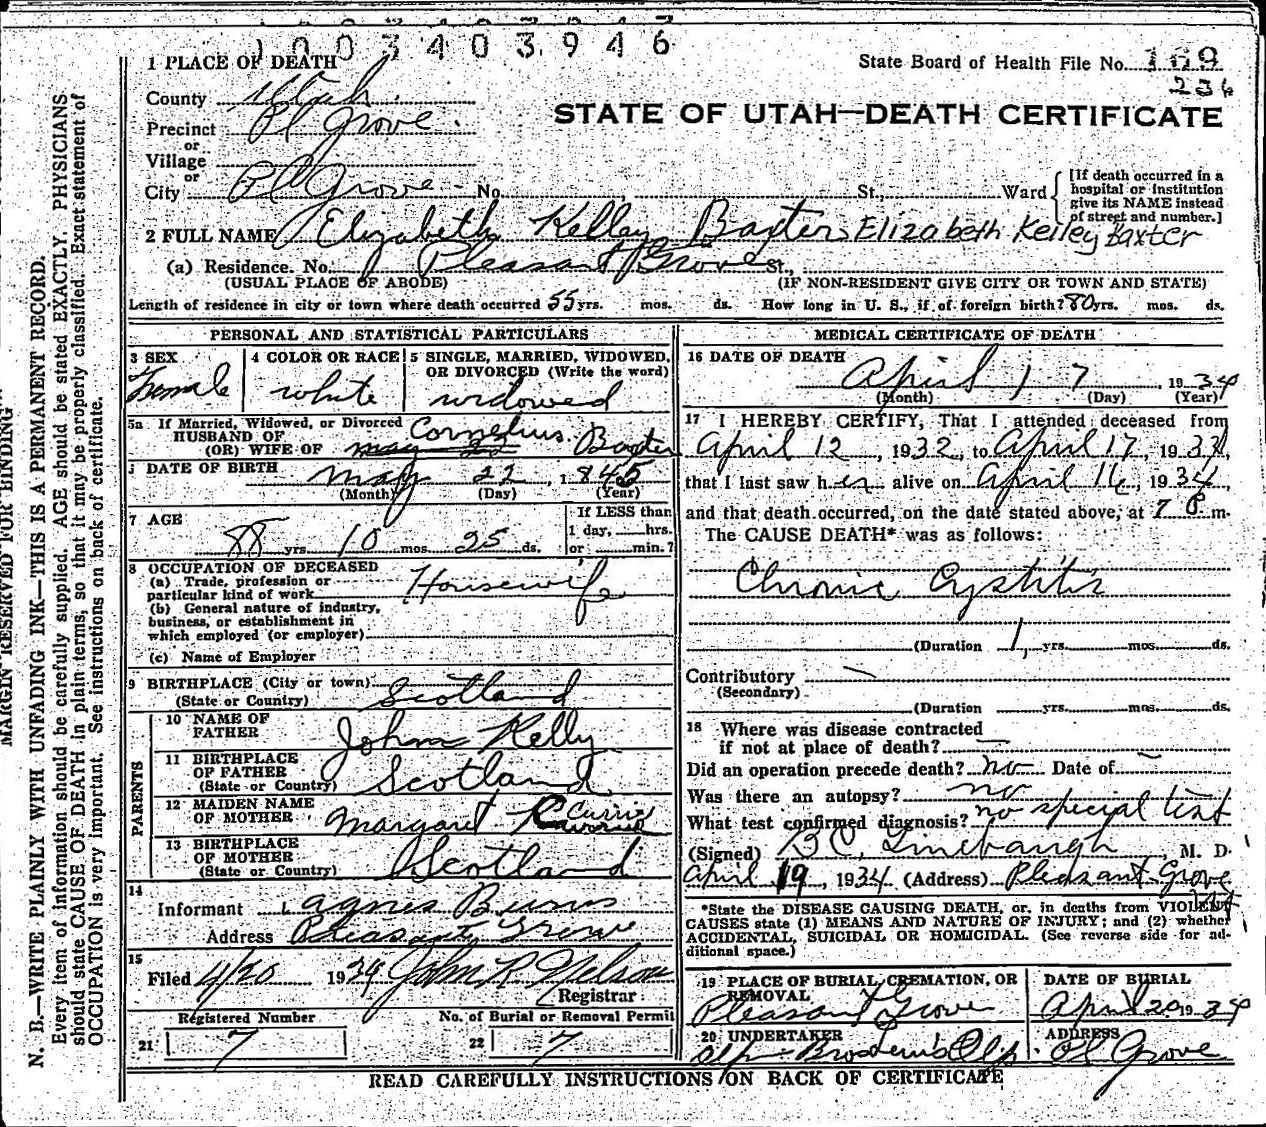 1003403946
State Board of Health File No. 169
236
STATE OF UTAH—DEATH CERTIFICATE
1 PLACE OF DEATH
County Utah
Precinct Pl Grove
or
Village
or
City Pl Grove No. St., Ward
[If death occurred in a hospital or institution give its NAME instead of street and number.]
2 FULL NAME Elizabeth Kelley Baxter Elizabeth Kelley Baxter
(a) Residence. No. Pleasant Grove St.,
(USUAL PLACE OF ABODE) (IF NON-RESIDENT GIVE CITY OR TOWN AND STATE)
Length of residence in city or town where death occurred 55 yrs. mos. ds. How long in U. S., if of foreign birth? 80 yrs. mos. ds.
PERSONAL AND STATISTICAL PARTICULARS
3 SEX
Female
4 COLOR OR RACE
white
5 SINGLE, MARRIED, WIDOWED,
OR DIVORCED (Write the word)
widowed
5a If Married, Widowed, or Divorced
HUSBAND OF
(OR) WIFE OF Cornelius Baxter
may 22
DATE OF BIRTH may 22, 1845
(Month) (Day) (Year)
7 AGE
88 yrs. 10 mos. 25 ds.
If LESS than
1 day, hrs.
or min.?
8 OCCUPATION OF DECEASED
(a) Trade, profession or
particular kind of work Housewife
(b) General nature of industry,
business, or establishment in
which employed (or employer)
(c) Name of Employer
9 BIRTHPLACE (City or town)
(State or Country) Scotland
PARENTS
10 NAME OF
FATHER John Kelly
11 BIRTHPLACE
OF FATHER
(State or Country) Scotland
12 MAIDEN NAME
OF MOTHER Margaret Currie
13 BIRTHPLACE
OF MOTHER
(State or Country) Scotland
14
Informant Agnes Burns
Address Pleasant Grove
15
Filed 4/20 1934 John R Nelson
Registrar
Registered Number No. of Burial or Removal Permit
21 7 22 7
MEDICAL CERTIFICATE OF DEATH
16 DATE OF DEATH
April 17, 1934
(Month) (Day) (Year)
17 I HEREBY CERTIFY, That I attended deceased from
April 12, 1932, to April 17, 1934,
that I last saw her alive on April 16, 1934,
and that death occurred, on the date stated above, at 7 P m.
The CAUSE DEATH* was as follows:
Chronic Cystitis
(Duration 1 yrs. mos. ds.
Contributory
(Secondary)
(Duration yrs. mos. ds.
18 Where was disease contracted
if not at place of death?
Did an operation precede death? no Date of
Was there an autopsy? no
What test confirmed diagnosis? no special test
(Signed) B C Linebaugh, M. D.
April 19, 1934 (Address) Pleasant Grove
Utah
*State the DISEASE CAUSING DEATH, or, in deaths from VIOLENT
CAUSES state (1) MEANS AND NATURE OF INJURY; and (2) whether
ACCIDENTAL, SUICIDAL OR HOMICIDAL. (See reverse side for ad-
ditional space.)
19 PLACE OF BURIAL, CREMATION, OR
REMOVAL
Pleasant Grove
DATE OF BURIAL
April 20 1934
20 UNDERTAKER
ADDRESS
Pl Grove
READ CAREFULLY INSTRUCTIONS ON BACK OF CERTIFICATE
MARGIN RESERVED FOR BINDING
N. B.—WRITE PLAINLY WITH UNFADING INK—THIS IS A PERMANENT RECORD.
Every item of information should be carefully supplied. AGE should be stated EXACTLY. PHYSICIANS
should state CAUSE OF DEATH in plain terms, so that it may be properly classified. Exact statement of
OCCUPATION is very important. See instructions on back of certificate.